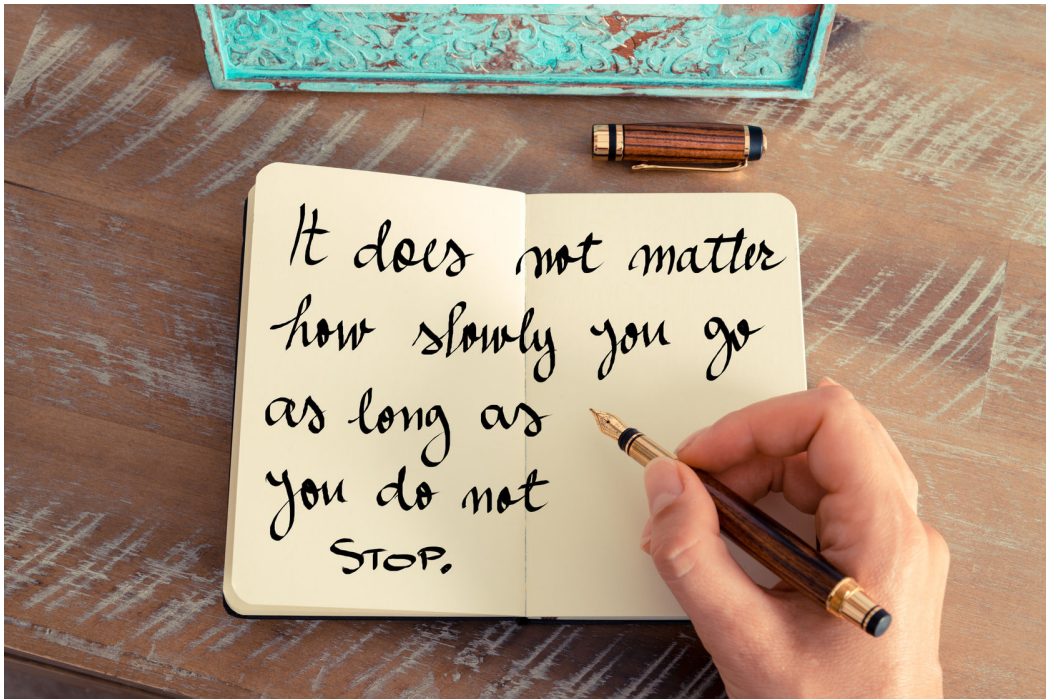 It does not matter
how slowly you go
as long as
you do not
STOP.